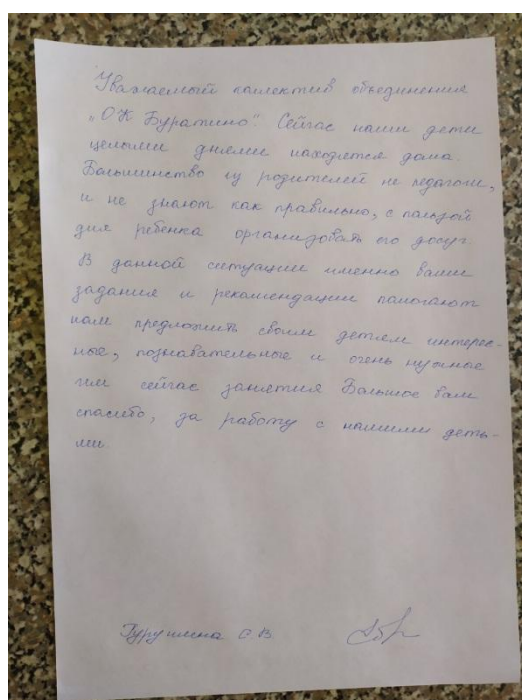 Уважаемый коллектив объединения
"ОК Буратино". Сейчас наши дети
целыми днями находятся дома.
Большинство из родителей не педагоги,
и не знают как правильно, с пользой
для ребёнка организовать его досуг.
В данной ситуации именно ваши
задания и рекомендации помогают
нам предложить своим детям интерес-
ные, познавательные и очень нужные
им сейчас занятия Большое вам
спасибо, за работу с нашими деть-
ми.